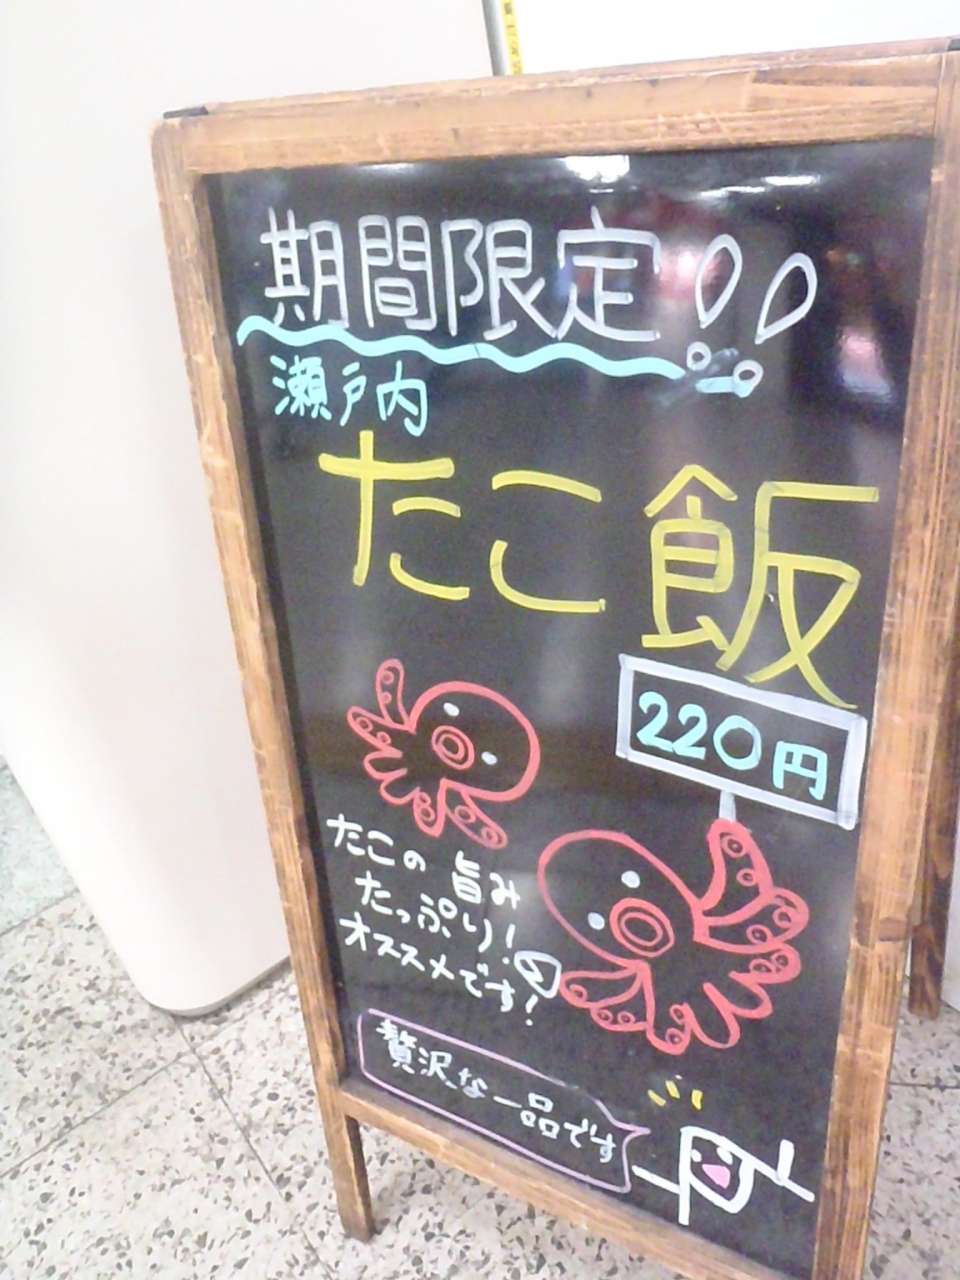 期間限定!!
瀬戸内
たこ飯
220円
たこの旨み
たっぷり!
オススメです!
贅沢な一品です